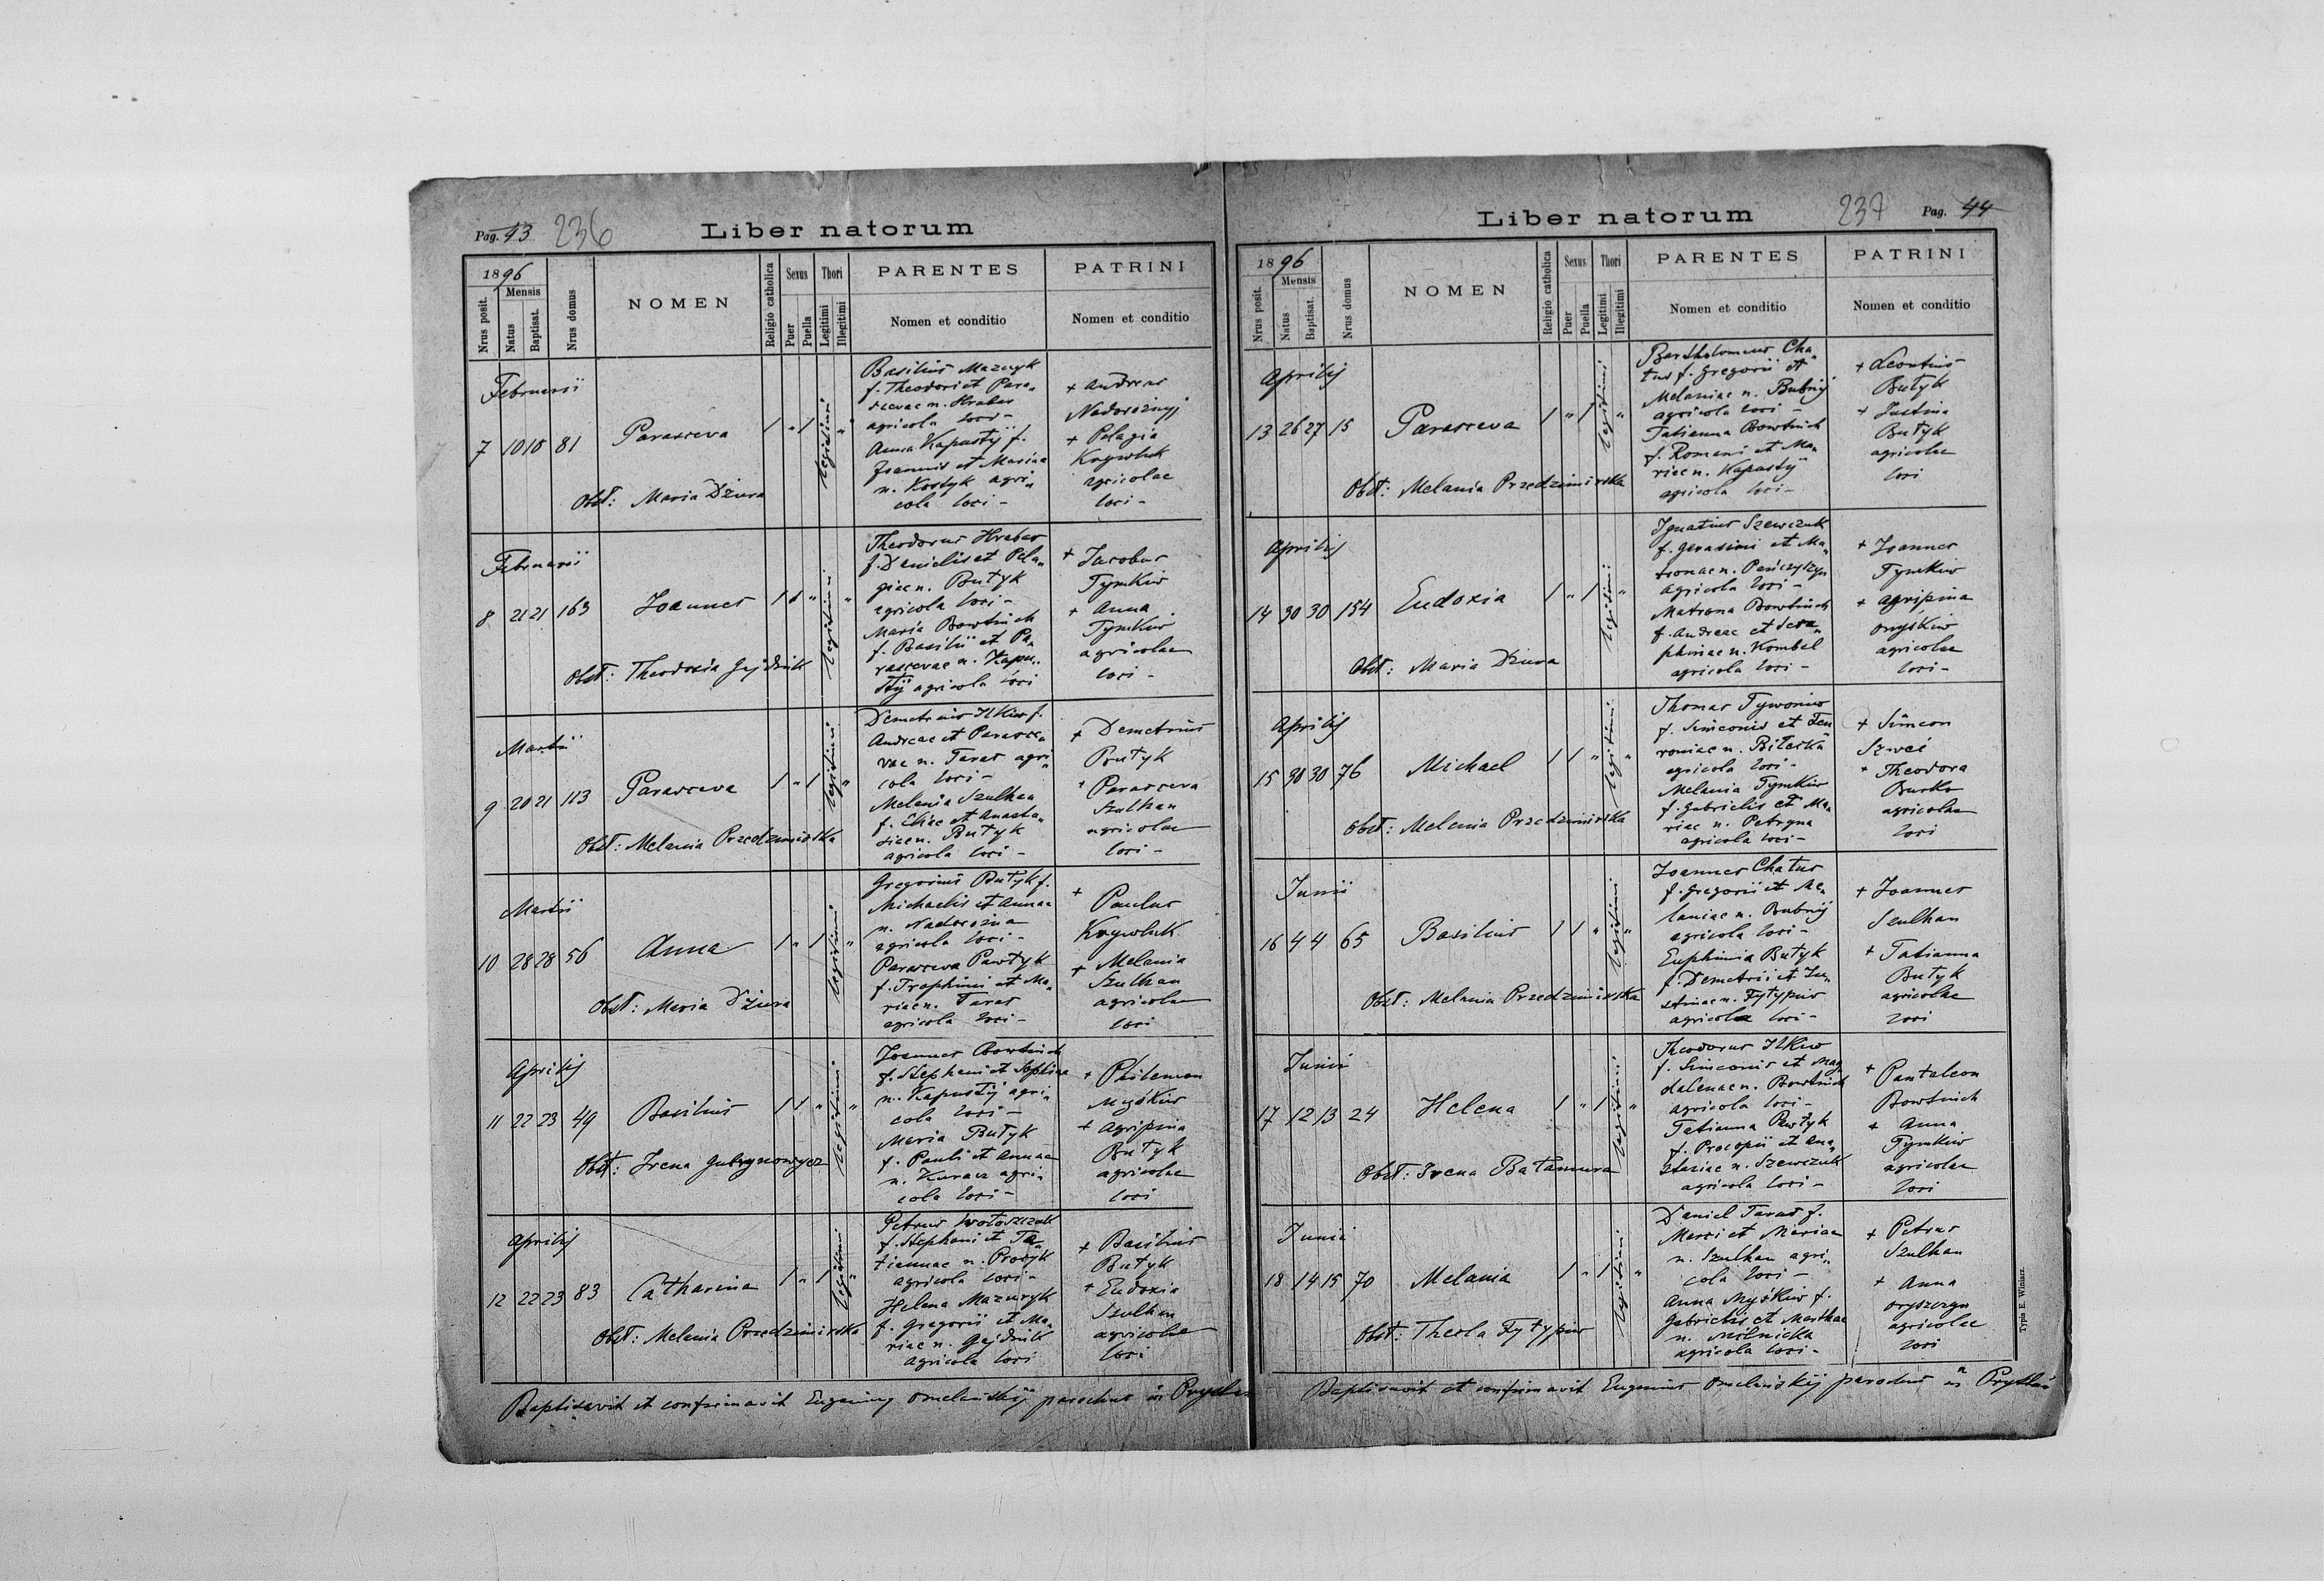 Pag. 43 236 Liber natorum
1896
Mensis
Nrus posit.
Natus
Baptisat.
Nrus domus
NOMEN
Religio catholica
Sexus
Puer
Puella
Thori
Legitimi
Illegitimi
PARENTES
Nomen et conditio
PATRINI
Nomen et conditio
Februarii
7 10 10 81 Parasceva 1 " 1 legitimi "
Obst: Maria Dziura
Basilius Mazuryk
f. Theodori et Para„
scevae n. Hrabar
agricola loci -
Anna Kapustÿ f.
Joannis et Mariae
n. Kostyk agri„
cola loci -
+ Andreas
Nadorożnyj
+ Pelagia
Krywluk
agricolae
loci -
Februarii
8 21 21 163 Joannes 1 1 " legitimi "
Obst: Theodosia Gejdruk
Theodorus Hrabar
f. Danielis et Pela„
giae n. Butyk
agricola loci -
Maria Bowtruch
f. Basilii et Pa„
rascevae n. Kapu„
stÿ agricola loci
+ Jacobus
Tymkiw
+ Anna
Tymkiw
agricolae
loci -
Martii
9 20 21 113 Parasceva 1 " 1 legitimi "
Obst: Melania Przedzimirska
Demetrius Ilkiw f.
Andreae et Parasce„
vae n. Taras agri„
cola loci -
Melania Szulhan
f. Eliae et Anasta„
siae n. Butyk
agricola loci -
+ Demetrius
Butyk
+ Parasceva
Szulhan
agricolae
loci -
Martii
10 28 28 56 Anna 1 " 1 legitimi "
Obst: Maria Dziura
Gregorius Butyk f.
Michaelis et Annae
n. Nadorożna
agricola loci -
Parasceva Pawłyk
f. Trophimi et Ma„
riae n. Taras
agricola loci -
+ Paulus
Krywluk
+ Melania
Szulhan
agricolae
loci
Aprilis
11 22 23 49 Basilius 1 1 " legitimi "
Obst: Irena Gubrynowycz
Joannes Bowtruch
f. Stephani et Sophiae
n. Kapustÿ agri„
cola loci -
Maria Butyk
f. Pauli et Annae
n. Kuracz agri„
cola loci -
+ Philemon
Myśkiw
+ Agripina
Butyk
agricolae
loci
Aprilis
12 22 23 83 Catharina 1 " 1 legitimi "
Obst: Melania Przedzimirska
Petrus Wołoszczuk
f. Stephani et Ta„
tiannae n. Procyk
agricola loci -
Helena Mazuryk
f. Gregorii et Ma„
riae n. Gejdruk
agricola loci
+ Basilius
Butyk
+ Eudoxia
Szulhan
agricolae
loci
Baptisavit et confirmavit Eugenius Omelańskij parochus in
Liber natorum 237 Pag. 44
1896
Mensis
Nrus posit.
Natus
Baptisat.
Nrus domus
NOMEN
Religio catholica
Sexus
Puer
Puella
Thori
Legitimi
Illegitimi
PARENTES
Nomen et conditio
PATRINI
Nomen et conditio
Aprilis
13 26 27 15 Parasceva 1 " 1 legitimi "
Obst: Melania Przedzimirska
Bartholomeus Cha„
tus f. Gregorii et
Melaniae n. Bubnij
agricola loci -
Tatianna Bowtruch
f. Romani et Ma„
riae n. Kapustÿ
agricola loci -
+ Leontius
Butyk
+ Justina
Butyk
agricolae
loci
Aprilis
14 30 30 154 Eudoxia 1 " 1 legitimi "
Obst: Maria Dziura
Ignatius Szewczuk
f. Gerasimi et Ma„
tronae n. Pańczyszyn
agricola loci -
Matrona Bowtruch
f. Andreae et Sera„
phinae n. Kombel
agricola loci -
+ Joannes
Tymkiw
+ Agripina
Onyśkiw
agricolae
loci -
Aprilis
15 30 30 76 Michael 1 1 " legitimi "
Obst: Melania Przedzimirska
Thomas Tywoniw
f. Simeonis et Feu„
roniae n. Bilecka
agricola loci -
Melania Tymkiw
f. Gabrielis et Ma„
riae n. Petryna
agricola loci -
+ Simeon
Szweć
+ Theodora
Burko
agricolae
loci
Junii
16 4 4 65 Basilius 1 1 " legitimi "
Obst: Melania Przedzimirska
Joannes Chatus
f. Gregorii et Me„
laniae n. Bubnij
agricola loci -
Euphimia Butyk
f. Demetrii et Ju„
stinae n. Fyłypiw
agricola loci -
+ Joannes
Szulhan
+ Tatianna
Butyk
agricolae
loci
Junii
17 12 13 24 Helena 1 " 1 legitimi "
Obst: Irena Bałamura
Theodorus Ilkiw
f. Simeonis et Mag„
dalenae n. Bowtruch
agricola loci -
Tatianna Pawłyk
f. Procopii et Ana„
stasiae n. Szewczuk
agricola loci -
+ Pantaleon
Bowtruch
+ Anna
Tymkiw
agricolae
loci
Junii
18 14 15 70 Melania 1 " 1 legitimi "
Obst: Thecla Fyłypiw
Daniel Taras f.
Marci et Mariae
n. Szulhan agri„
cola loci -
Anna Myśkiw f.
Gabrielis et Marthae
n. Milnicka
agricola loci -
+ Petrus
Szulhan
+ Anna
Oryszczyn
agricolae
loci
Baptisavit et confirmavit Eugenius Omelańskij parochus in
Typis E. Winiarz.